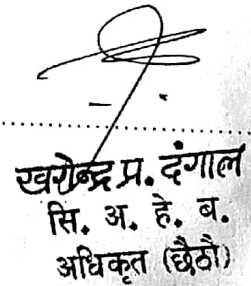 खगेन्द्र प्र. दंगाल
सि. अ. हे. ब.
अधिकृत (छैठौ)